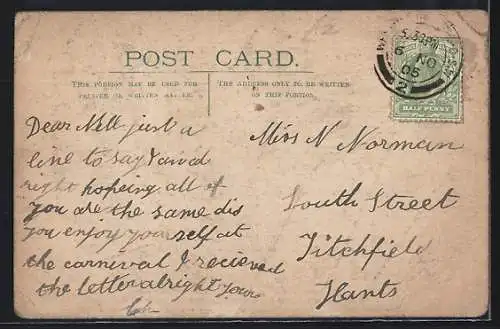 POST CARD.
THIS PORTION MAY BE USED FOR
THE ADDRESS ONLY TO BE WRITTEN
ON THIS PORTION.
5.30PM
6 NO
05
2
HALF PENNY
Dear Nell just a
line to say I arrived
right hopeing all of
you are the same did
you enjoy yourself at
the carnival I recieved
the letter alright yours
Miss N Norman
South Street
Titchfield
Hants